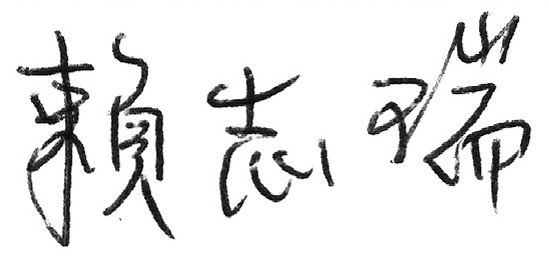 賴志瑞